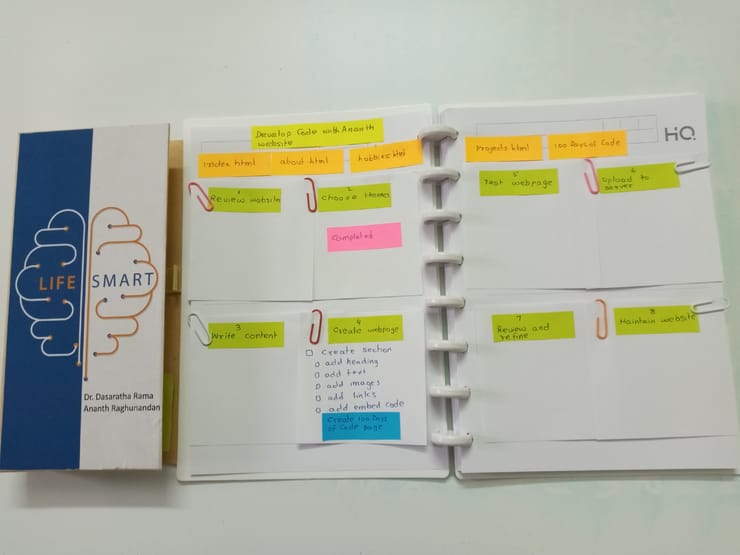 LIFE SMART
Dr. Dasaratha Rama
Ananth Raghunandan
Develop Code with Ananth
website
index html
about html
hobbies html
1
Review website
2
Choose themes
Completed
3
Write content
4
Create webpage
Create section
add heading
add text
add images
add links
add embed code
Create 100 Days
of Code page
HQ
Projects html
100 Days of Code
5
Test webpage
6
Upload to
server
7
Review and
refine
8
Maintain website